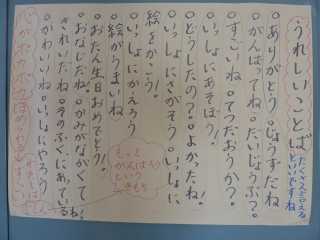 うれしいことば
たくさん言える
といいですね
○ありがとう。○じょうずだね
○がんばってね。○だいじょうぶ?。
○すごいね。○てつだおうか?。
○いっしょにあそぼう!
○どうしたの?○よかったね!
○いっしょにさがそう○いっしょに
絵をかこう!
○いっしょにかえろう
○絵がうまいね
○おたん生日おめでとう!
○おなじだね!○かみがながくて
きれいだね。○そのふくにあているね!
○かわいいね。○いっしょにやろう
もっと
がんばろう
という
きもち